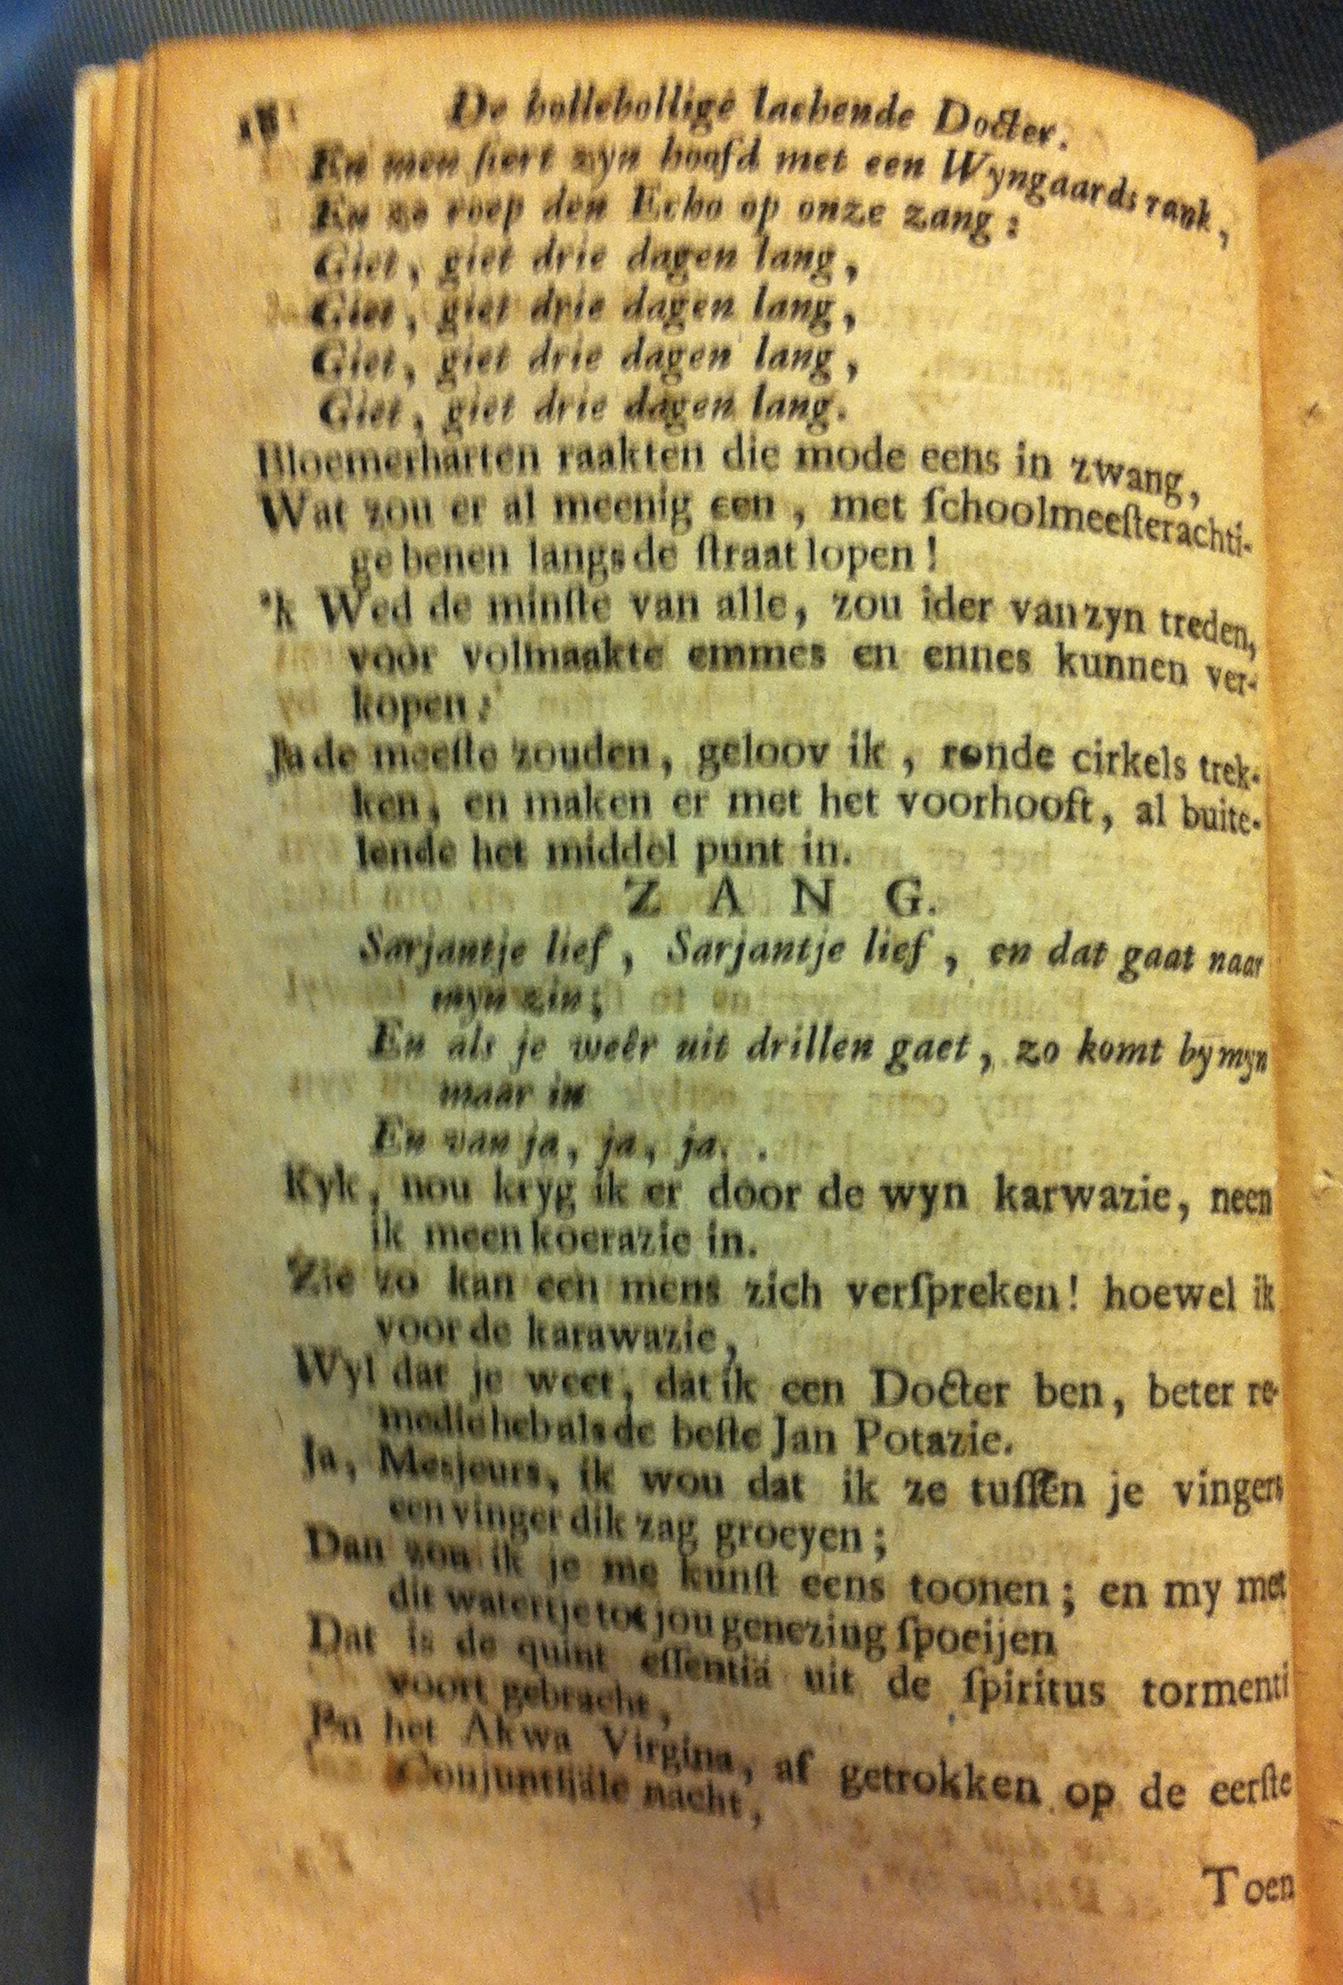 18 De bollebollige lachende Docter.
En men siert zyn hoofd met een Wyngaards rank,
En zo roep den Echo op onze zang:
Giet, giet drie dagen lang,
Giet, giet drie dagen lang,
Giet, giet drie dagen lang,
Giet, giet drie dagen lang.
Bloemerharten raakten die mode eens in zwang,
Wat zou er al meenig een, met ſchoolmeeſterachti-
ge benen langs de ſtraat lopen!
'k Wed de minſte van alle, zou ider van zyn treden,
voor volmaakte emmes en ennes kunnen ver-
kopen:
Ja de meeſte zouden, geloov ik, ronde cirkels trek-
ken, en maken er met het voorhooft, al buite-
lende het middel punt in.
Z A N G.
Sarjantje lief, Sarjantje lief, en dat gaat naar
myn zin;
En als je weêr uit drillen gaet, zo komt by myn
maar in
En van ja, ja, ja. .
Kyk, nou kryg ik er door de wyn karwazie, neen
ik meen koerazie in.
Zie zo kan een mens zich verſpreken! hoewel ik
voor de karawazie,
Wyl dat je weet, dat ik een Docter ben, beter re-
medie heb als de beſte Jan Potazie.
Ja, Mesjeurs, ik wou dat ik ze tuſſen je vingers
een vinger dik zag groeyen;
Dan zou ik je me kunſt eens toonen; en my met
dit watertje tot jou genezing ſpoeijen
Dat is de quint eſſentia uit de ſpiritus tormenti
voort gebracht,
En het Akwa Virgina, af getrokken op de eerſte
nacht,
Toen